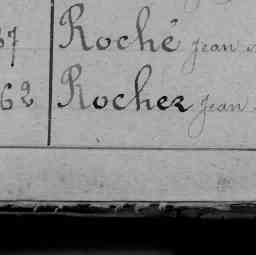 37 Roché Jean
62 Rocher Jean